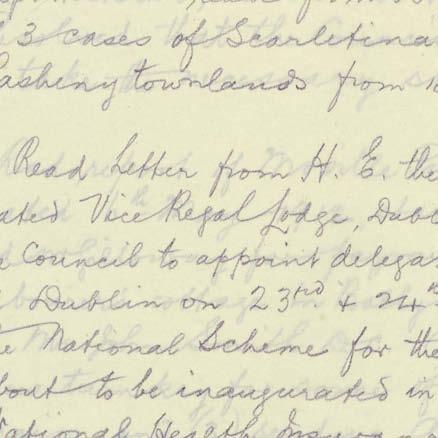 3 cases of Scarletina
townlands from
Read Letter from H. E. the
ated Vice Regal Lodge, Dub
Council to appoint delega
Dublin on 23rd & 24th
National Scheme for the
bout to be inaugurated in
National Health Insura